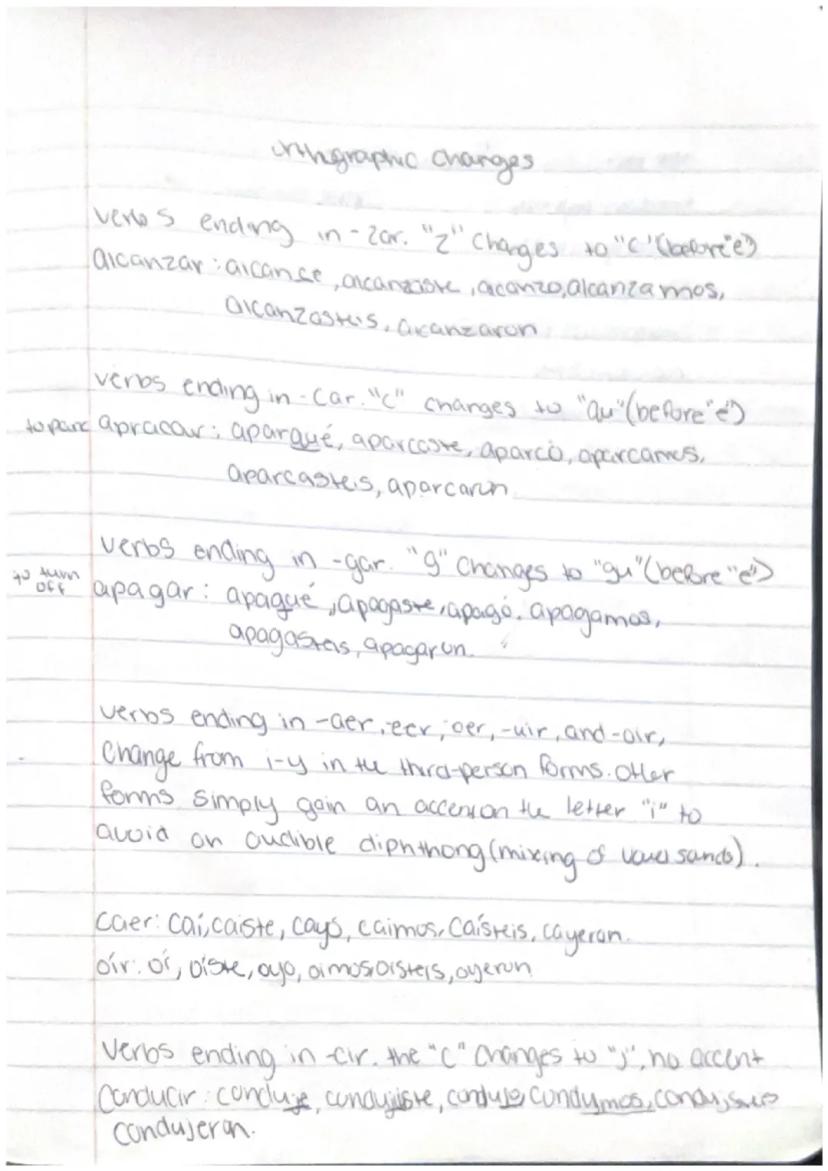 orthgraphic changes
verbs ending in -zar. "z" changes to "c" (before "e")
alcanzar: alcance, alcanzaste, acanzo, alcanzamos,
alcanzasteis, acanzaron
verbs ending in -car. "c" changes to "qu" (before "e")
to parc apracar: aparqué, aparcaste, aparcó, aparcamos,
aparcasteis, aparcaron
verbs ending in -gar. "g" changes to "gu" (before "e")
to turn off
apagar: apagué, apagaste, apagó, apagamos,
apagasteis, apagaron.
verbs ending in -aer, -eer, -oer, -uir, and -oir,
change from i-y in the third-person forms. Other
forms simply gain an accent on the letter "i" to
avoid an audible diphthong (mixing of vowel sands).
caer: caí, caiste, cayó, caimos, caísteis, cayeron.
oír: oí, oiste, oyo, oimos, oisteis, oyeron
verbs ending in -cir. the "c" changes to "j", no accent
conducir: conduje, condujiste, condujo, condujmos,
condujeron.